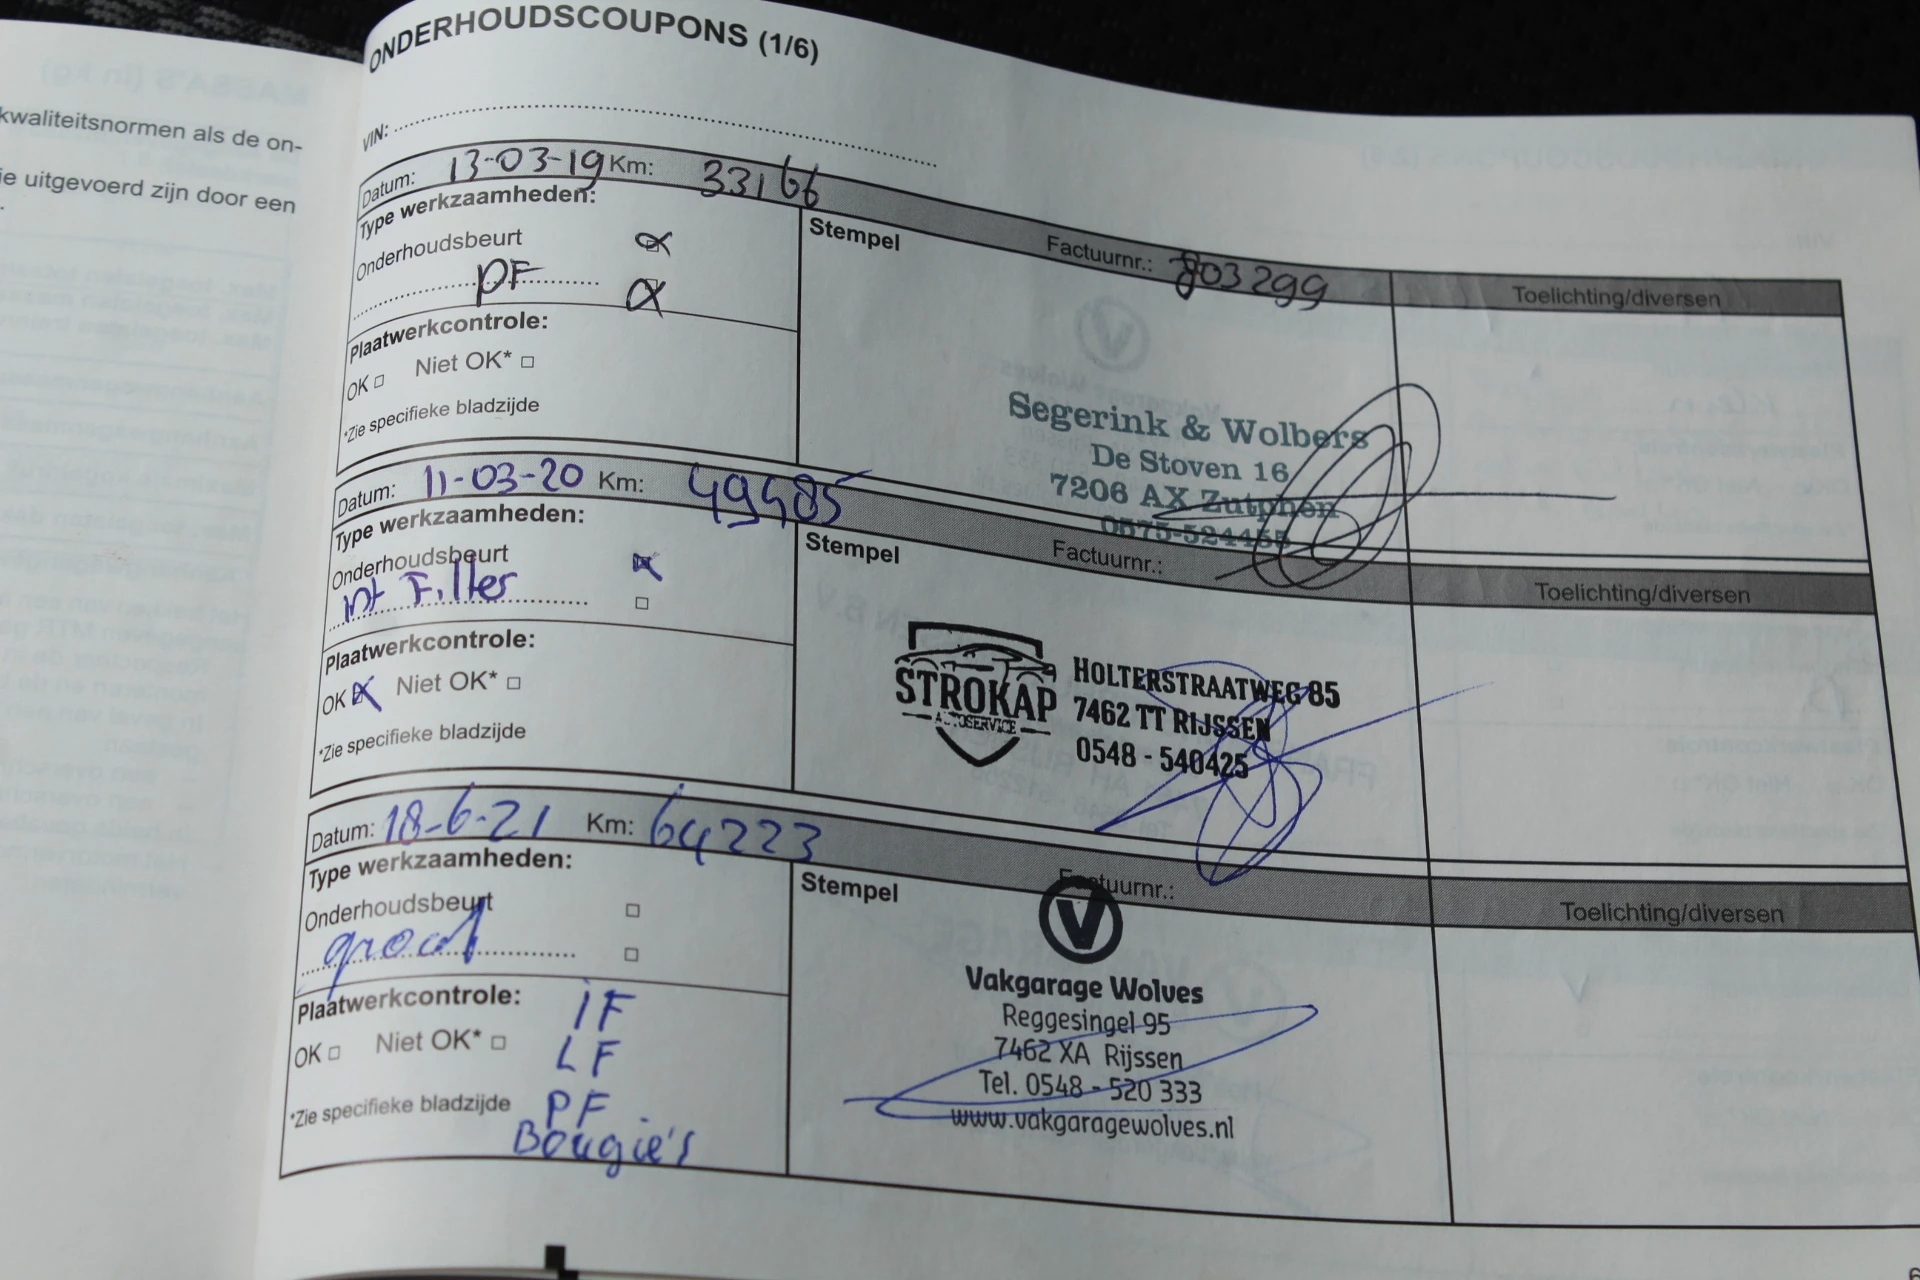 kwaliteitsnormen als de on-
ie uitgevoerd zijn door een
ONDERHOUDSCOUPONS (1/6)
VIN:
Datum: 13-03-19 Km: 33166
Type werkzaamheden:
Onderhoudsbeurt
PF
Plaatwerkcontrole:
OK Niet OK*
*Zie specifieke bladzijde
Stempel Factuurnr.: 803299 Toelichting/diversen
Segerink & Wolbers
De Stoven 16
7206 AX Zutphen
0575-524455
Datum: 11-03-20 Km: 49485
Type werkzaamheden:
Onderhoudsbeurt
int Filter
Plaatwerkcontrole:
OK Niet OK*
*Zie specifieke bladzijde
Stempel Factuurnr.: Toelichting/diversen
STROKAP
AUTOSERVICE
HOLTERSTRAATWEG 85
7462 TT RIJSSEN
0548 - 540425
Datum: 18-6-21 Km: 64223
Type werkzaamheden:
Onderhoudsbeurt
groot
Plaatwerkcontrole:
OK Niet OK*
*Zie specifieke bladzijde
iF
LF
PF
Bougie's
Stempel Factuurnr.: Toelichting/diversen
V
Vakgarage Wolves
Reggesingel 95
7462 XA Rijssen
Tel. 0548 - 520 333
www.vakgaragewolves.nl
6